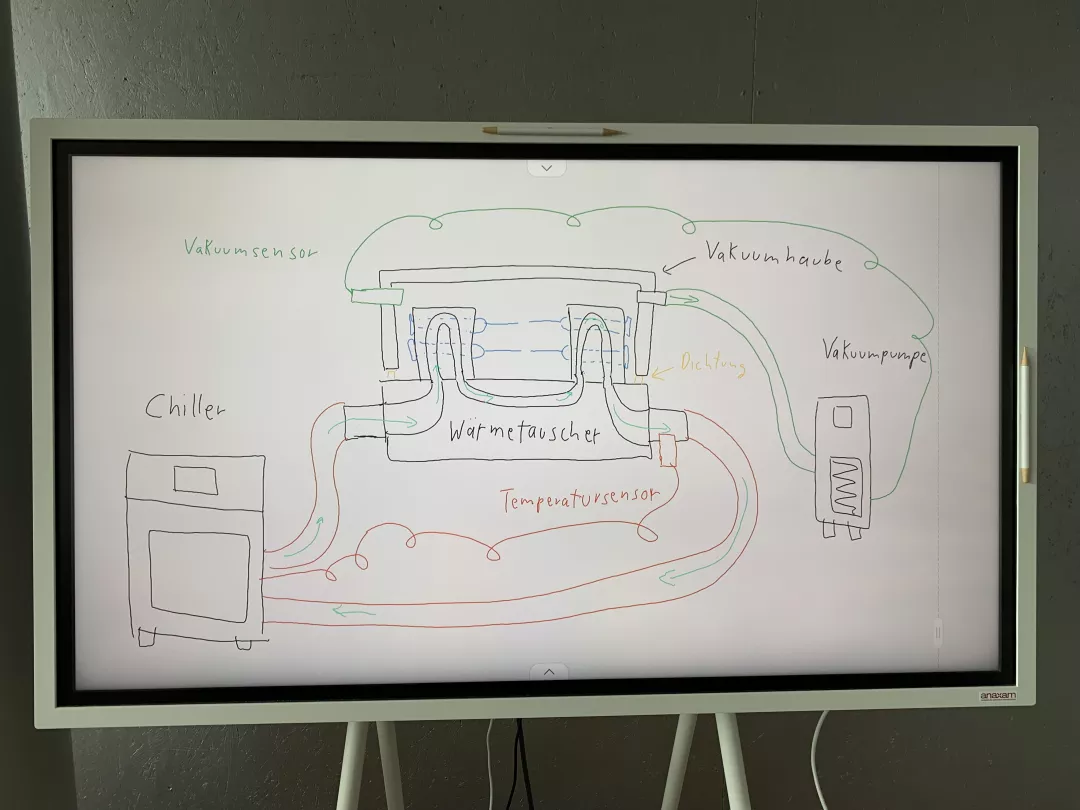 Vakuumsensor
Vakuumhaube
Vakuumpumpe
Dichtung
Chiller
Wärmetauscher
Temperatursensor
anaxam